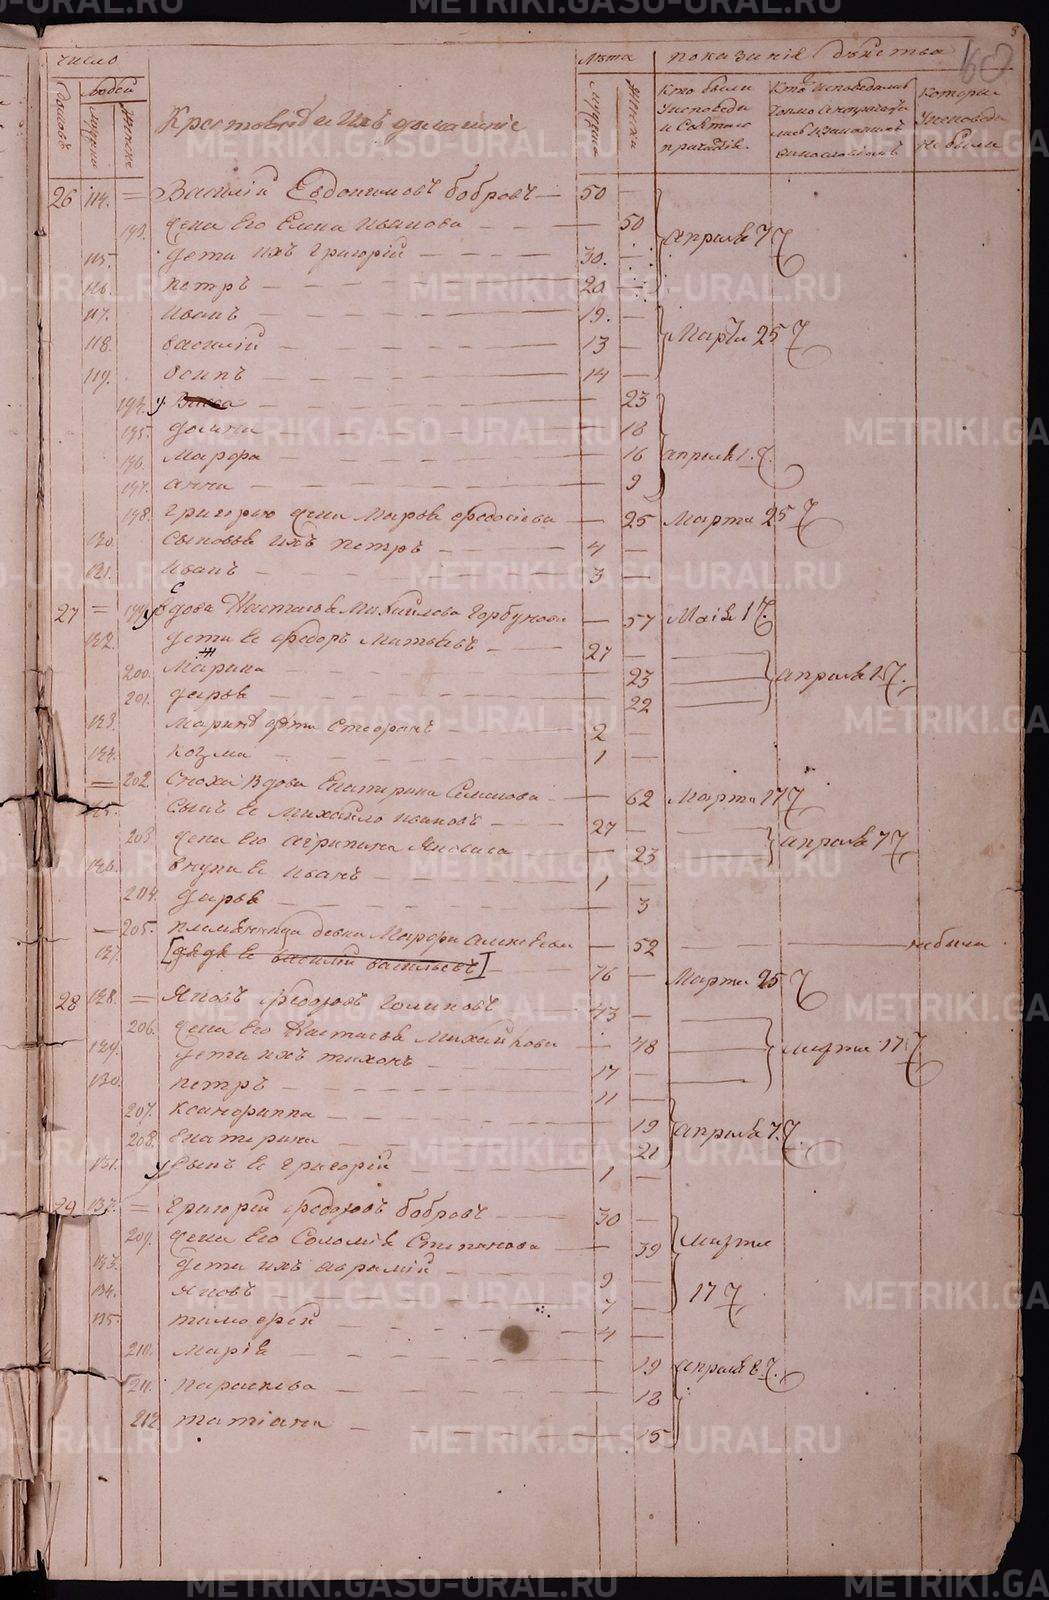 METRIKI.GASO-URAL.RU
число
домовъ
людей
мужска
женска
Крестовяне и Ихъ домашние
Лѣта
мужска
женска
показание дѣйства
60
Кто были
Исповеди
и Святаго
причастїя
Кто исповедались
токмо а непричасти
лись
Которые
Исповеди
не были
26 114. = Василий Евдокимовъ бобровъ — 50 —
193. жена Его Елена Иванова — 50
апреля 7
115. дети ихъ Григорий — 30. —
116. петръ — 20 —
117. иванъ — 19. —
Марта 25
118. василий — 13 —
119. осипъ — 14 —
194. Васса — 23
195. 18
196. Марфа — 16
апреля 1.
197. анна — 9
198. Григорью жена Марья федосеева — 25 Марта 25
120. сыновья ихъ петръ — 4 —
121. иванъ — 3 —
27 = 199 вдова Настасья Михаилова Горбунова — 57 Маія 1
122. дети Ее федоръ Матвеевъ — 27 —
200. Марина — 23
апреля
201. дарья — 22
123. Марины дети Стефанъ — 2 —
124. козма — 1 —
= 202 сноха вдова Екатерина Семенова — 62 Марта 17
125. сынъ Ее Михайло ивановъ — 27 —
203 жена Его агрипина Яковлева — 23
апреля 7
126. внуки Ее иванъ — 1 —
204. дарья — 3
— 205. племянница девка Марфа алексеева — 52 — — небыла
127. [дядя Ее василий васильевъ] — 76 — Марта 25
28 128. = Яковъ федоровъ Голиковъ — 43 —
206. жена Его Настасья Михайлова — 48
Марта 17
129. дети ихъ тихонъ — 17 —
130. петръ — 11 —
207. ксанфиппа — 19
апреля 7.
208. екатерина — 21
131. сынъ Ее григорий — 1 —
29 132. = Григорий федоровъ бобровъ — 30 —
209. жена Его Соломия Степанова — 39
Марта
17
133. дети ихъ аврамий — 9 —
134. Яковъ — 7 —
135. тимофей — 4 —
210. Мария — 19 апреля 8
211. параскева — 18
212 татиана — 15